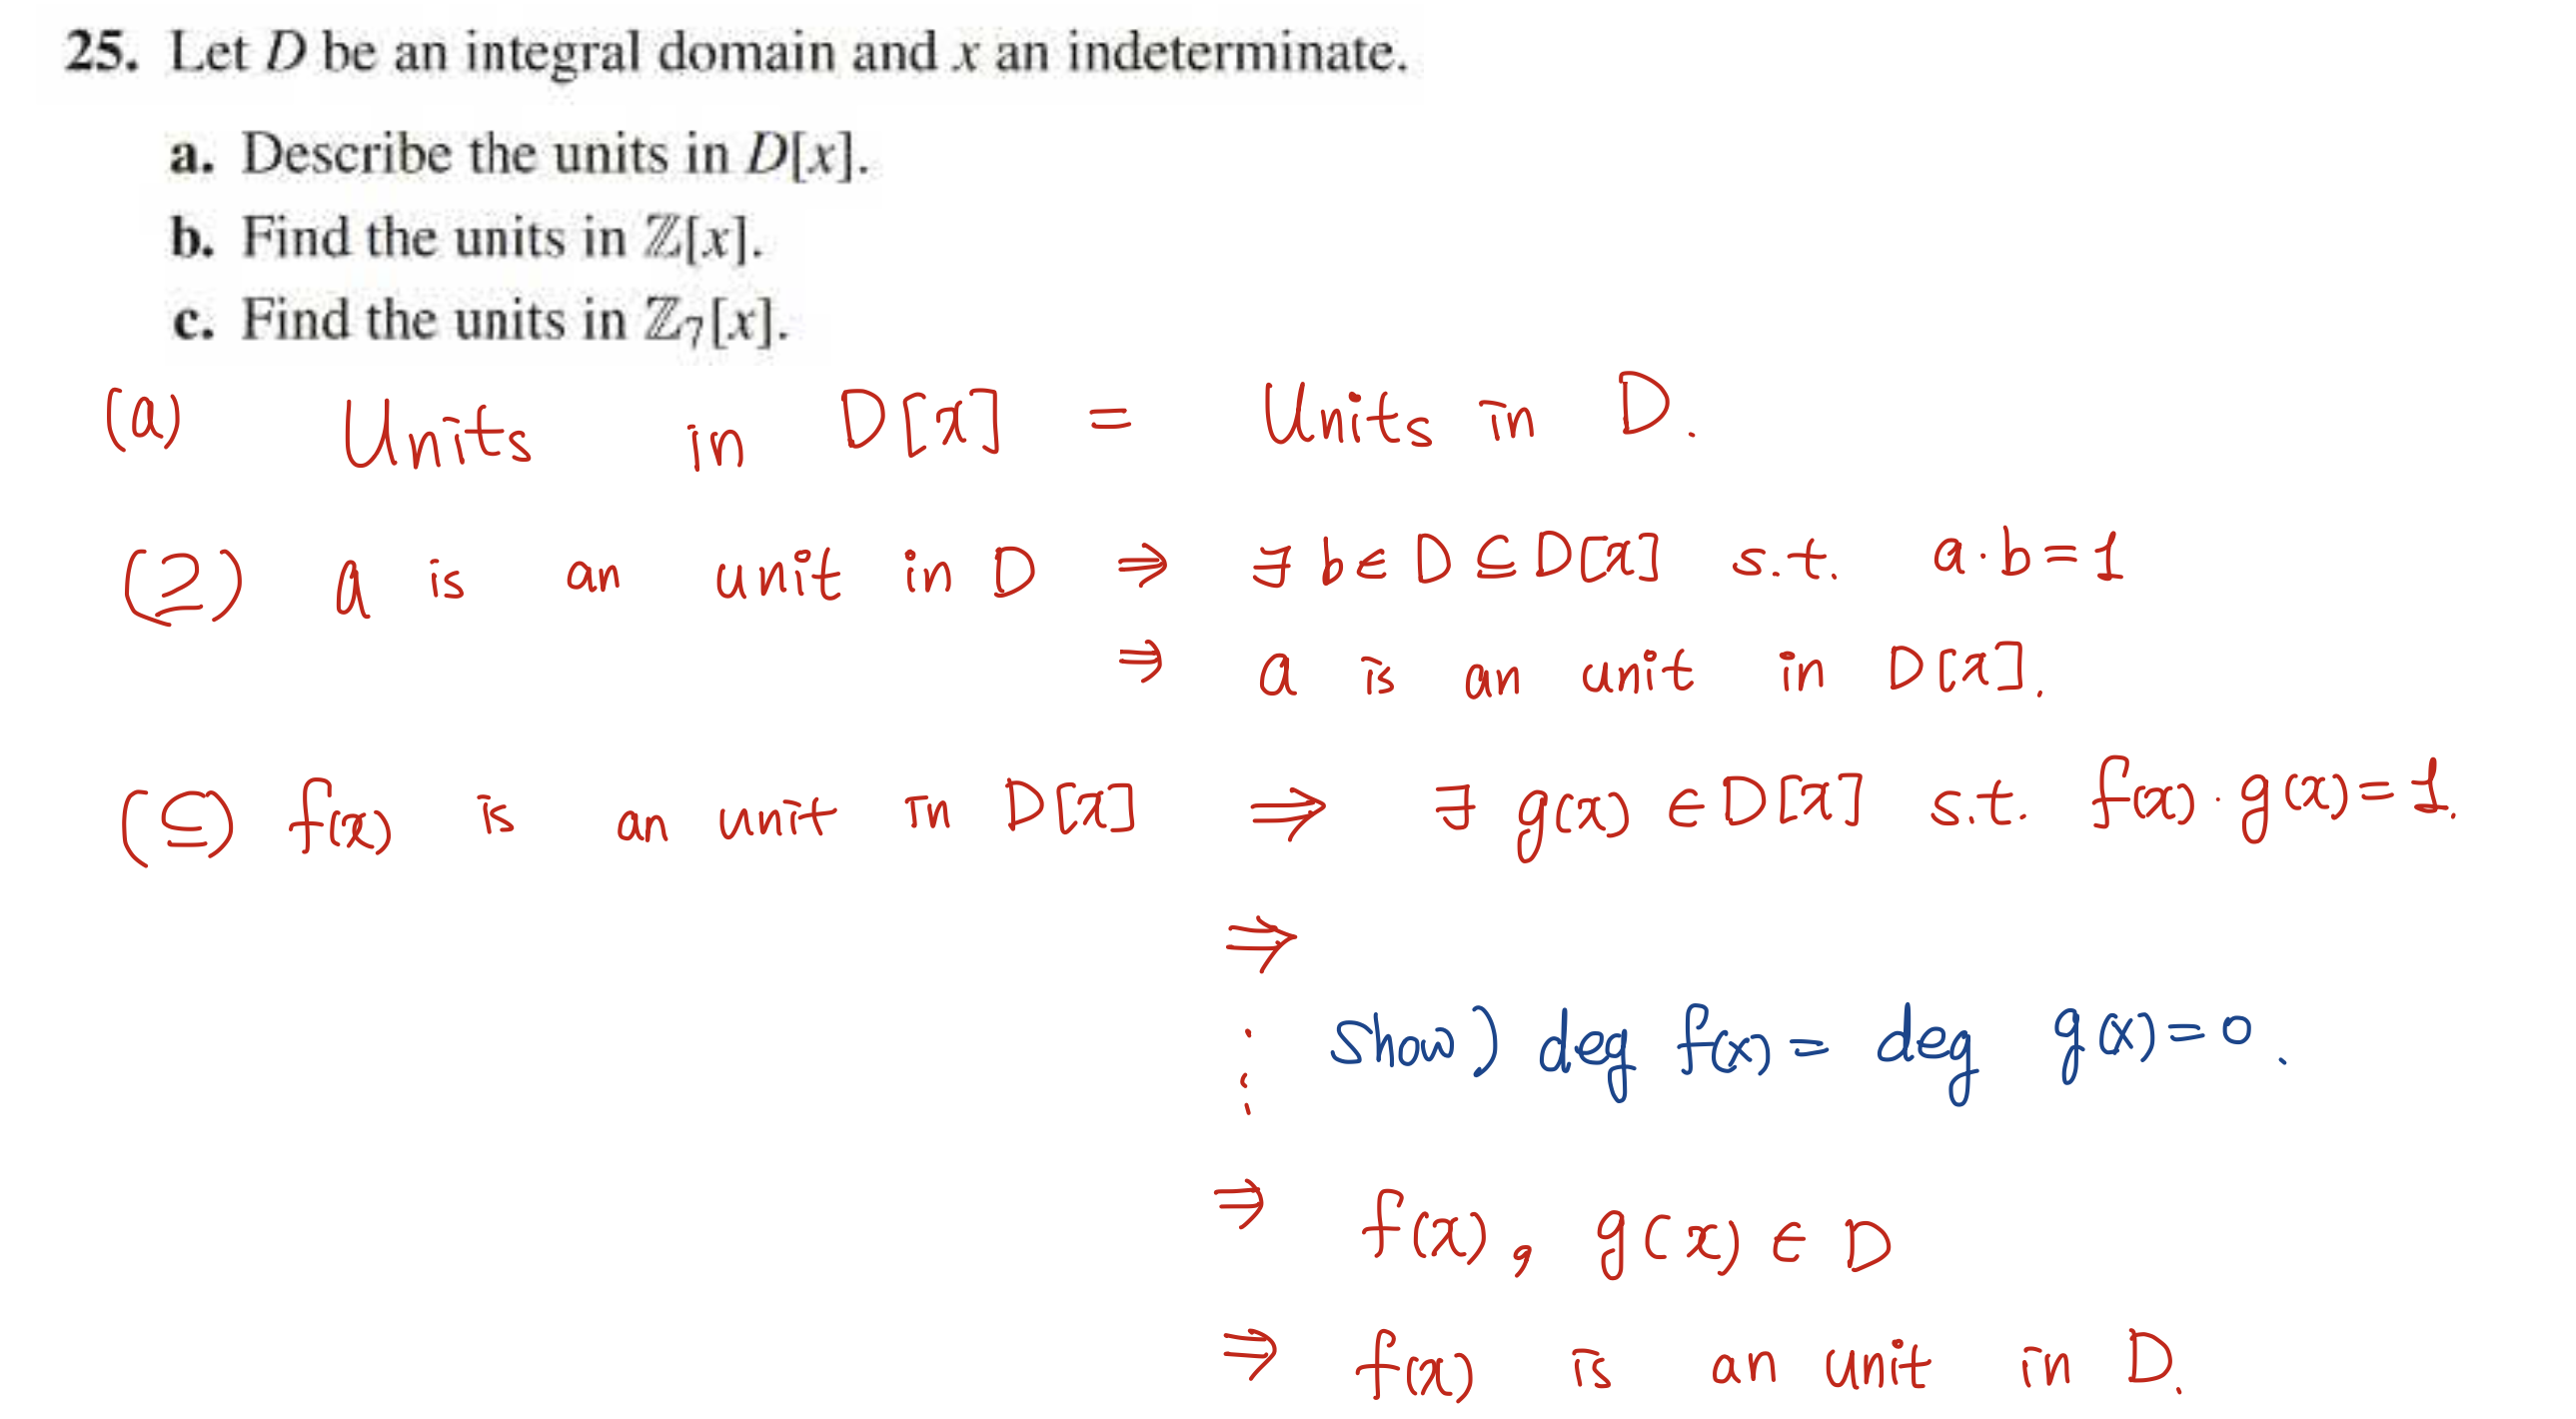 25. Let D be an integral domain and x an indeterminate.
a. Describe the units in D[x].
b. Find the units in ℤ[x].
c. Find the units in ℤ₇[x].
(a) Units in D[x] = Units in D.
(⊇) a is an unit in D ⇒ ∃ b ∈ D ⊆ D[x] s.t. a·b=1
⇒ a is an unit in D[x].
(⊆) f(x) is an unit in D[x] ⇒ ∃ g(x) ∈ D[x] s.t. f(x)·g(x)=1.
⇒
⋮ show) deg f(x) = deg g(x)=0.
⇒ f(x), g(x) ∈ D
⇒ f(x) is an unit in D.